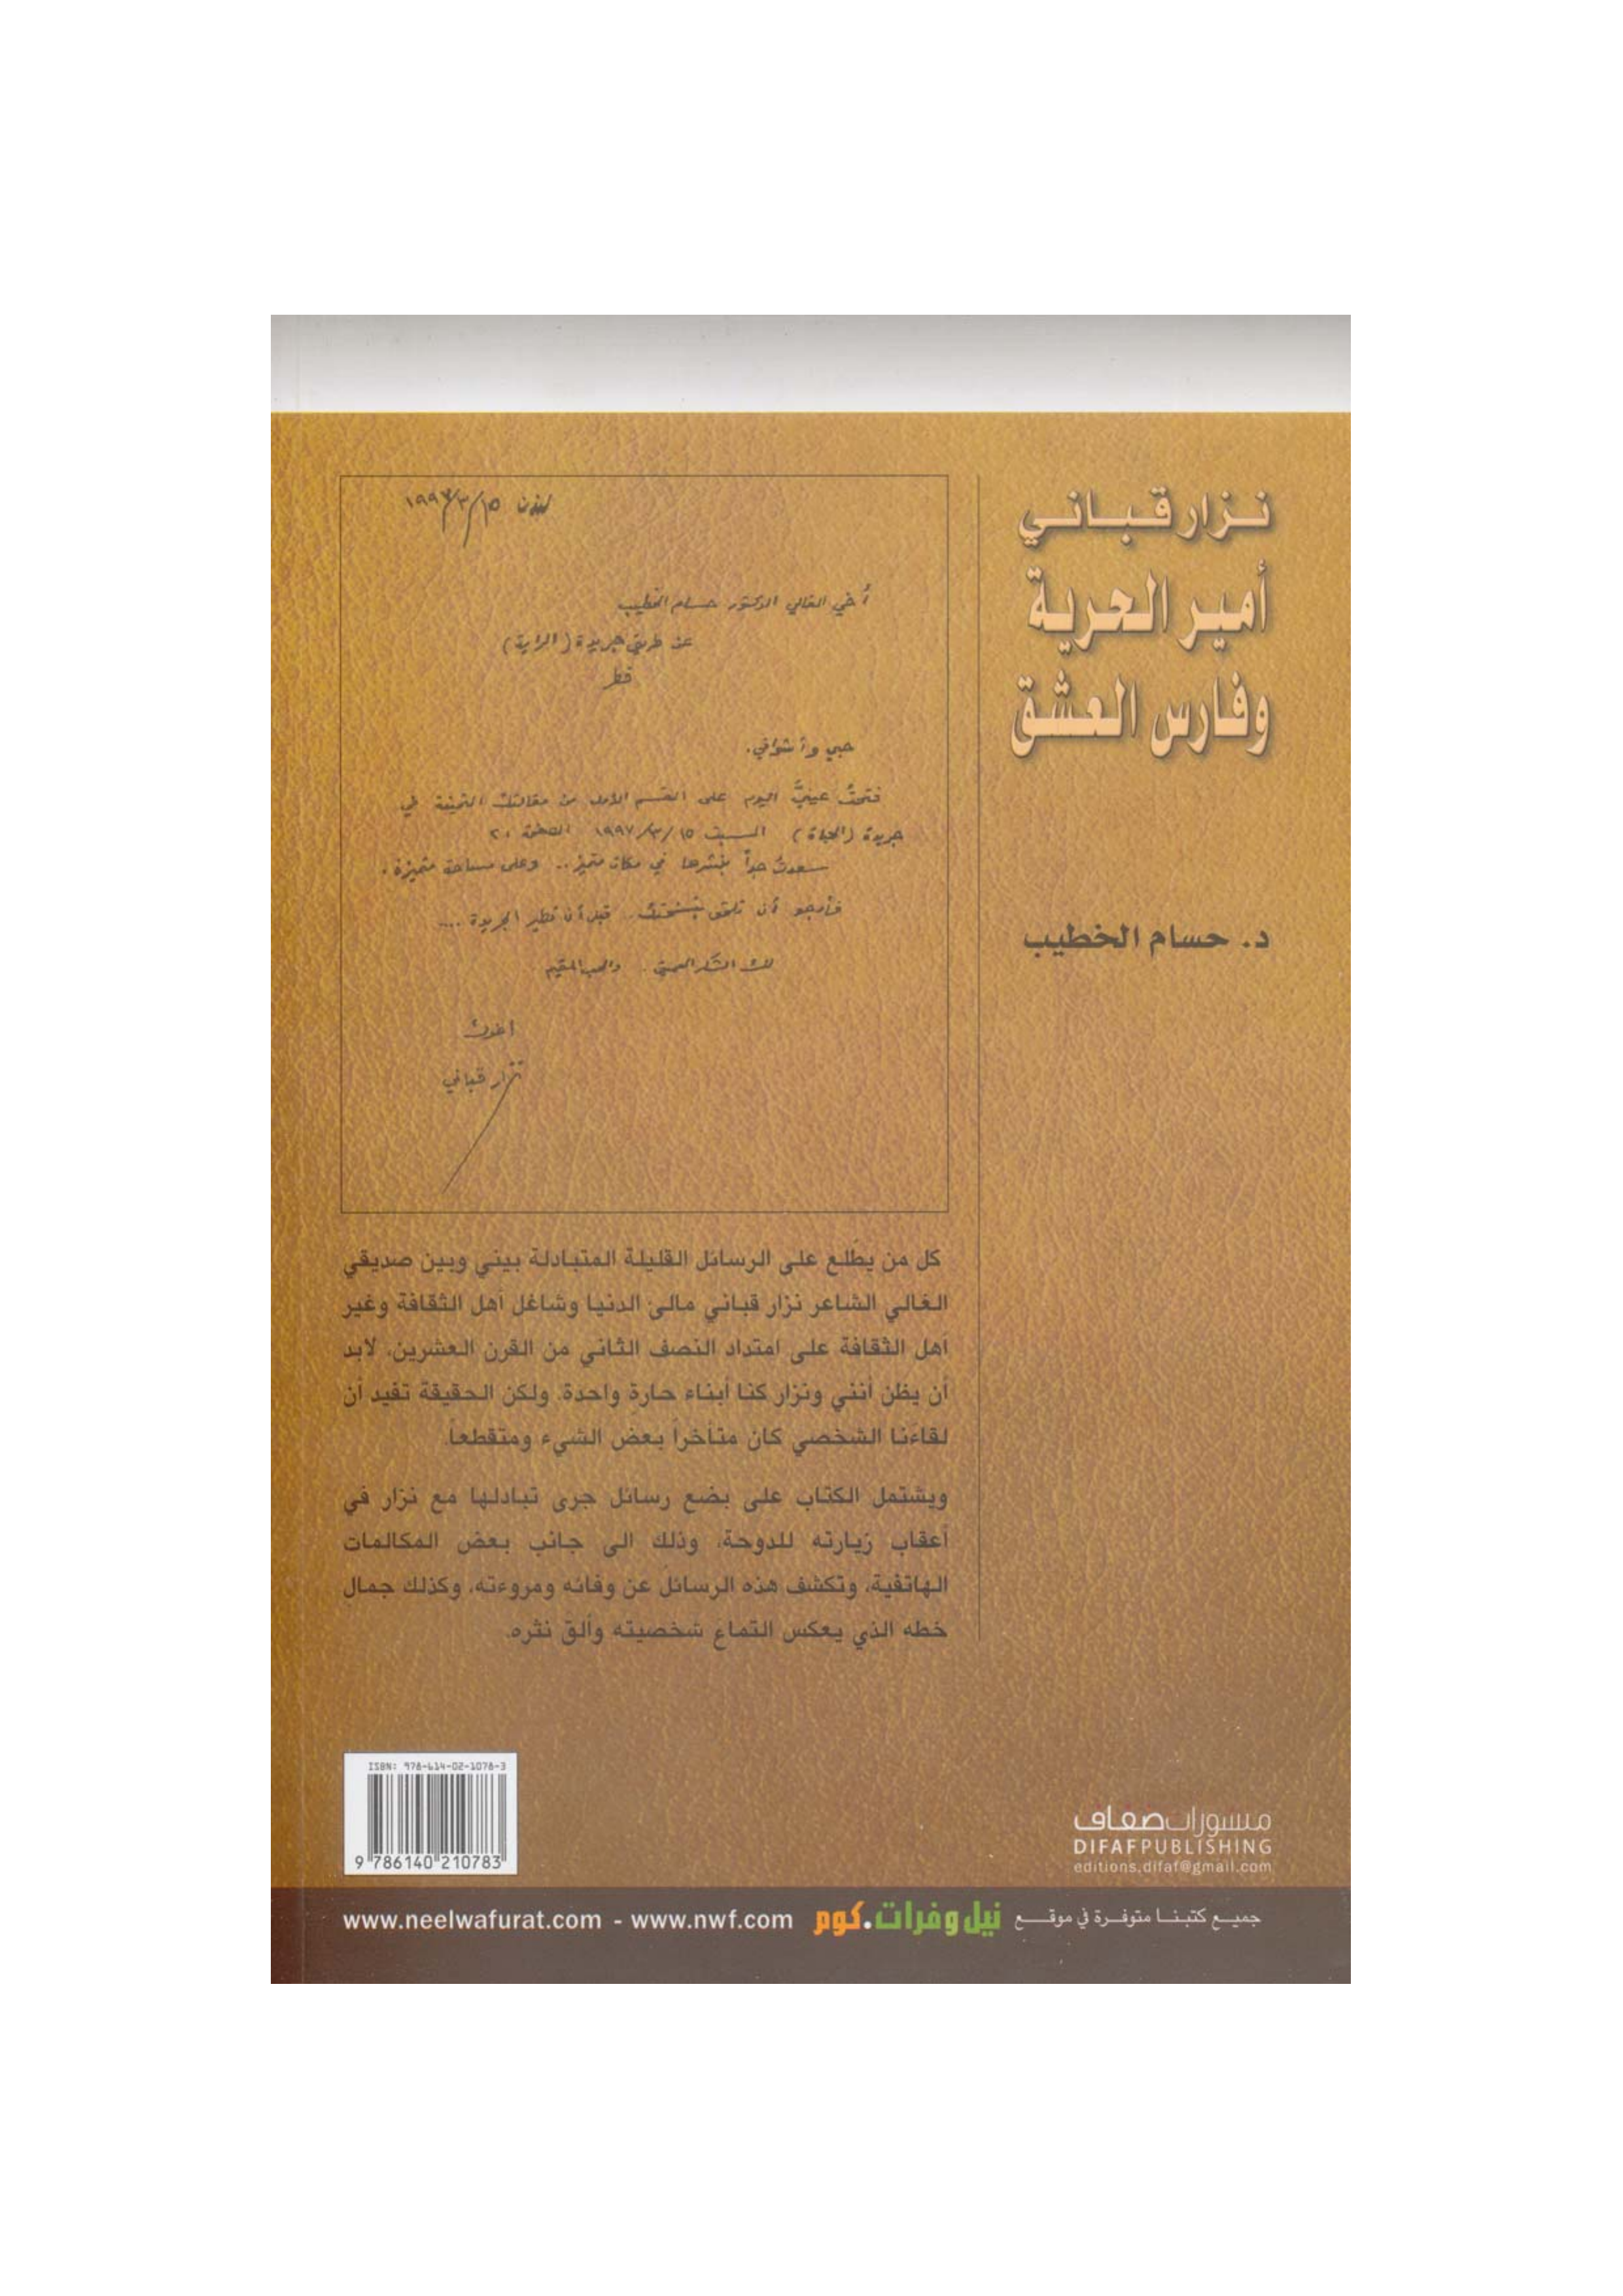 نزار قباني
أمير الحرية
وفارس العشق
د. حسام الخطيب
لندن ١٥/٣/١٩٩٧
أخي الغالي الدكتور حسام الخطيب
عن طريق جريدة (الراية)
قطر
حبي وأشواقي.
فتحتُ عينيَّ اليوم على القسم الأول من مقالتك الثمينة في
جريدة (الحياة) السبت ١٥/٣/١٩٩٧ الصفحة ٢٠
سعدتُ جداً بنشرها في مكان متميز .. وعلى مساحة متميزة.
فأرجو أن تلحق بنسختك .. قبل أن تطير الجريدة ....
لك الشكر العميق . والحب المقيم
أخوك
نزار قباني
كل من يطّلع على الرسائل القليلة المتبادلة بيني وبين صديقي
الغالي الشاعر نزار قباني مالئ الدنيا وشاغل أهل الثقافة وغير
أهل الثقافة على امتداد النصف الثاني من القرن العشرين، لابد
أن يظن أنني ونزار كنا أبناء حارة واحدة. ولكن الحقيقة تفيد أن
لقاءنا الشخصي كان متأخراً بعض الشيء ومتقطعاً.
ويشتمل الكتاب على بضع رسائل جرى تبادلها مع نزار في
أعقاب زيارته للدوحة، وذلك الى جانب بعض المكالمات
الهاتفية، وتكشف هذه الرسائل عن وفائه ومروءته، وكذلك جمال
خطه الذي يعكس التماع شخصيته وألق نثره.
ISBN: 978-614-02-1078-3
9 786140 210783
منشورات ضفاف
DIFAF PUBLISHING
editions.difaf@gmail.com
جميع كتبنا متوفرة في موقع نيل وفرات.كوم www.neelwafurat.com - www.nwf.com